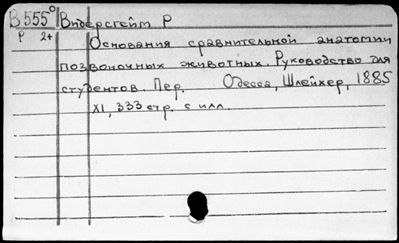 В 555° Видерсгейм Р
Р 2+ Основания сравнительной анатомии
позвоночных животных. Руководство для
студентов. Пер. Одесса, Шлейхер, 1885
XI, 333 стр. с илл.